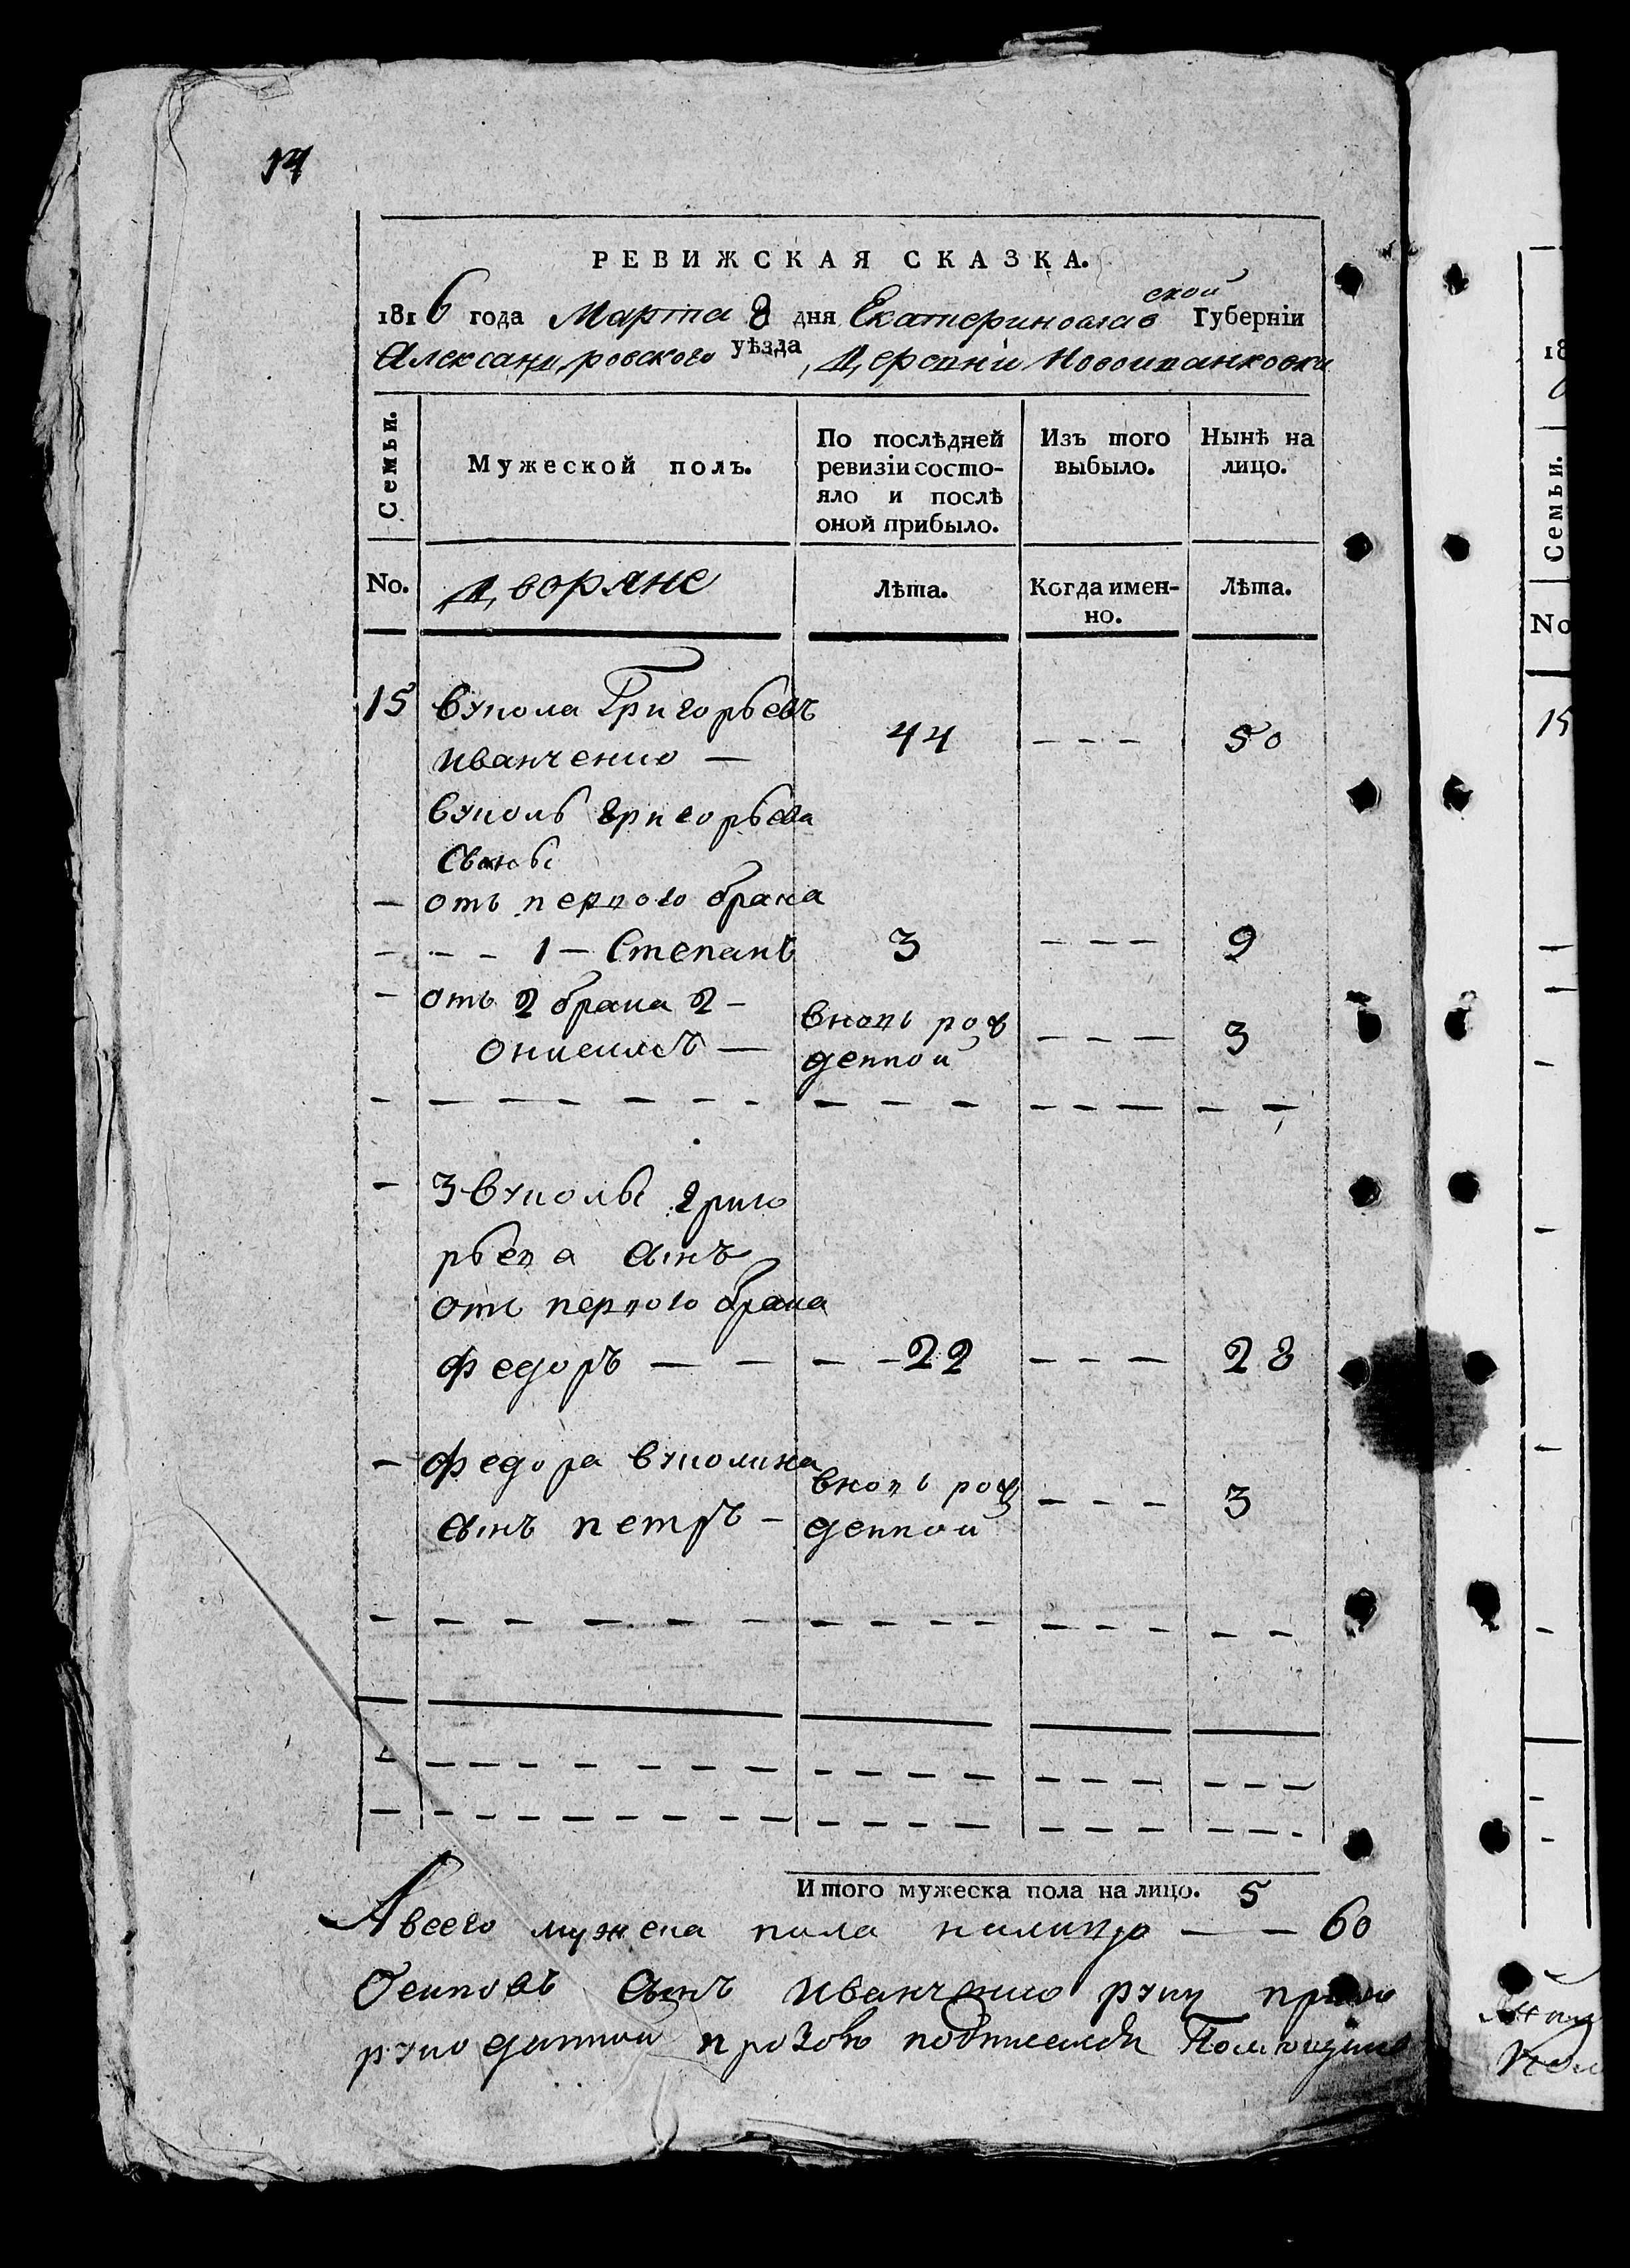 14
РЕВИЖСКАЯ СКАЗКА.
1816 года Марта 8 дня Екатеринославской Губерніи
Александровского уѣзда, Деревни Новоиванковки
Семьи.
Мужеской полъ.
По послѣдней ревизіи состояло и послѣ оной прибыло.
Изъ того выбыло.
Нынѣ на лицо.
No. Дворяне Лѣта. Когда именно. Лѣта.
15 Вукола Григорьевъ
Иванченко — 44 - - - 50
Вуколы Григорьева
сыновья
— отъ первого брака
- - - 1 — Степанъ 3 - - - 9
- отъ 2 брака 2 -
Онисимъ — вновь рожденной - - - 3
- 3 Вуколы Григо
рьева сынъ
отъ первого брака
Федоръ — — - - 22 - - - 28
- Федора Вуколина
сынъ Петръ - вновь рожденной - - - 3
Итого мужеска пола на лицо. 5
А всего мужеска пола налицо — — 60
Осиповъ сынъ Иванченко руку прило
18
Семьи.
No
15